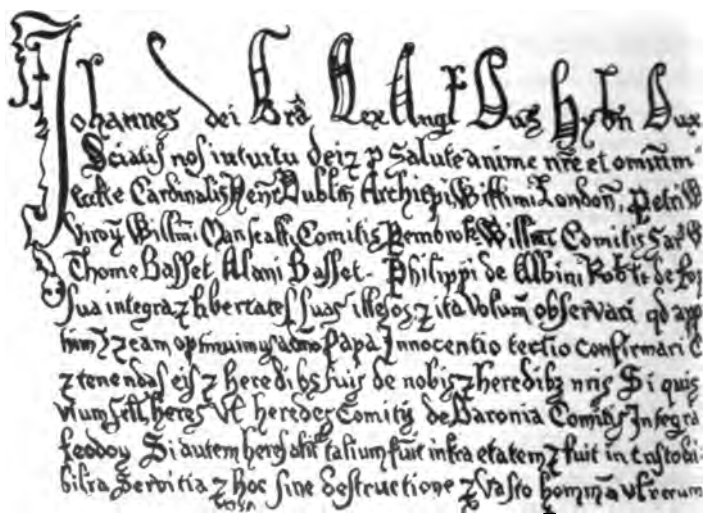 Johannes dei Grã Rex Angł Dus Hybn Dux
Sciatis nos intuitu dei ⁊ p salute anime nr̃e et omnium
eccłe Cardinalis Henr̃ Dublin Archiepi, Willimi London, Petri W
virox Willmi Marescalli, Comitis Pembrok, Willmi Comitis Sar W
Thome Basset Alani Basset Philippi de Albini Robti de Ro
sua integra ⁊ libertates suas illesas ⁊ ita volum observari qd app
⁊ eam optinuimus a dno Papa Innocentio tertio confirmari
⁊ tenendas eis ⁊ heredibs suis de nobis ⁊ heredibz nris Si quis
heres vł heredes Comitis de Baronia Comitis Integra
feodox Si autem heres alic talium fuit infra etatem ⁊ fuit in custodi
servitia ⁊ hoc sine destructione ⁊ vasto hominũ vł rerum